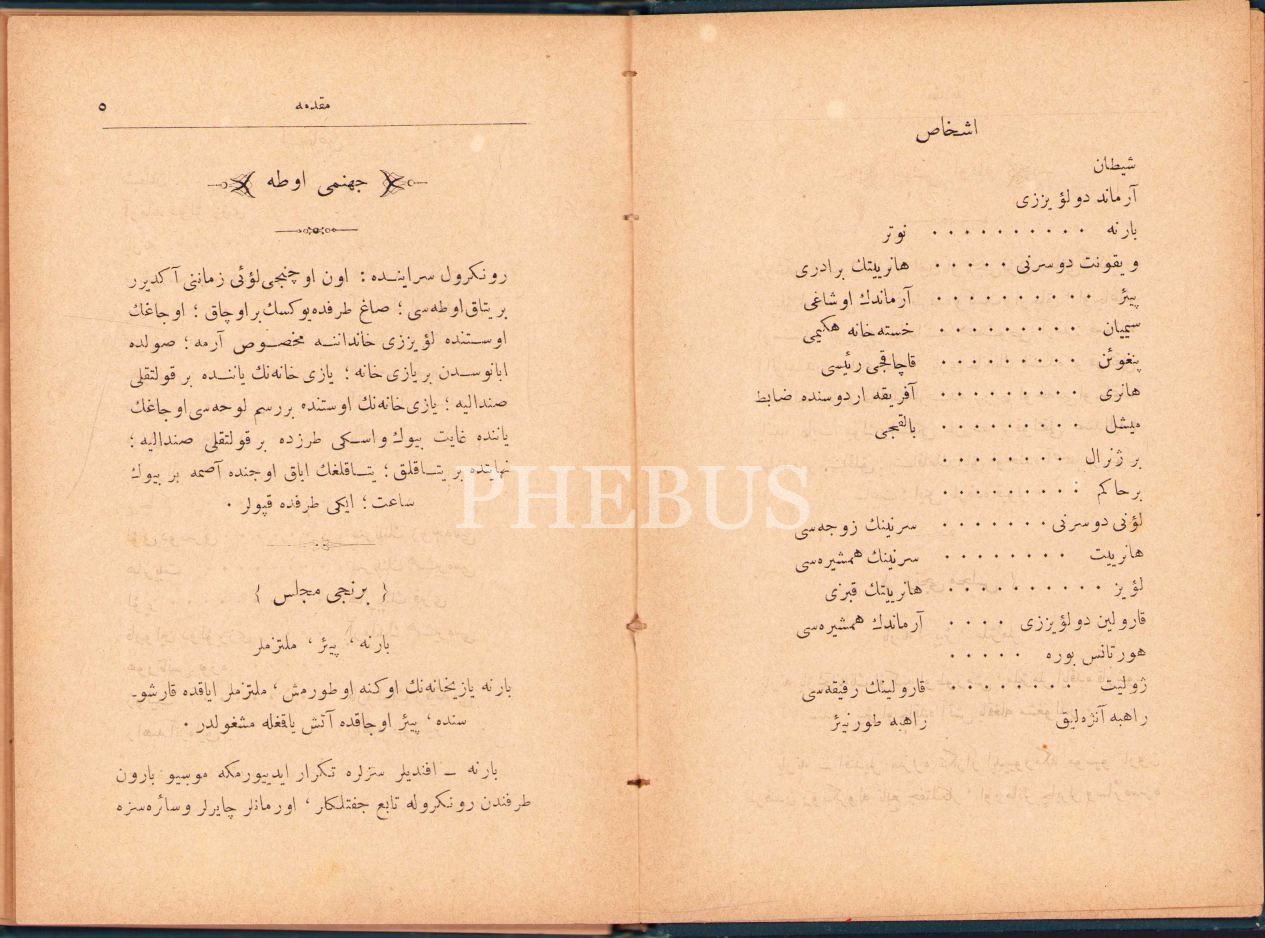 اشخاص
شيطان
آرماند دولؤيززى
بارنه . . . . . . . . . . نوتر
ويقونت دوسرنى . . . . . هانرييتك برادرى
پيئر . . . . . . . . . . آرماندك اوشاغى
سيميان . . . . . . . . . خسته‌خانه حكيمى
پنغوئن . . . . . . . . . قاچاقجى رئيسى
هانرى . . . . . . . . . آفريقه اردوسنده ضابط
ميشل . . . . . . . . . بالقجى
بر ژنرال . . . . . . . .
برحاكم . . . . . . . . .
لؤنى دوسرنى . . . . . . . سرنينك زوجه‌سى
هانرييت . . . . . . . . سرنينك همشيره‌سى
لؤيز . . . . . . . . . . هانرييتك قيزى
قارولين دولؤيززى . . . . آرماندك همشيره‌سى
هورتانس بوره . . . . .
ژوليت . . . . . . . . قارولينك رفيقه‌سى
راهبه آنژه‌ليق راهبه طورنيئر
مقدمه ٥
جهنمى اوطه
رونكرول سراينده : اون اوچنجى لؤئى زماننى آكديرر
بر يتاق اوطه‌سى ؛ صاغ طرفده يوكسك بر اوچاق ؛ اوجاغك
اوستنده لؤيززى خانداننه مخصوص آرمه ؛ صولده
ابانوسدن بر يازى خانه ؛ يازى خانه‌نك ياننده بر قولتقلى
صنداليه ؛ يازى خانه‌نك اوستنده بر رسم لوحه‌سى اوجاغك
ياننده غايت بيوك واسكى طرزده بر قولتقلى صنداليه ؛
نهايتده بر يتاقلق ؛ يتاقلغك اياق اوجنده آصمه بر بيوك
ساعت ؛ ايكى طرفده قپولر .
{ برنجى مجلس }
بارنه ، پيئر ، ملتزملر
بارنه يازيخانه‌نك اوكنه اوطورمش ، ملتزملر اياقده قارشو-
سنده ، پيئر اوجاقده آتش ياقمغله مشغولدر .
بارنه ــ افنديلر سزلره تكرار ايدييورمكه موسيو بارون
طرفندن رونكروله تابع جفتلكلر ، اورمانلر چايرلر وسائره‌سزه
PHEBUS